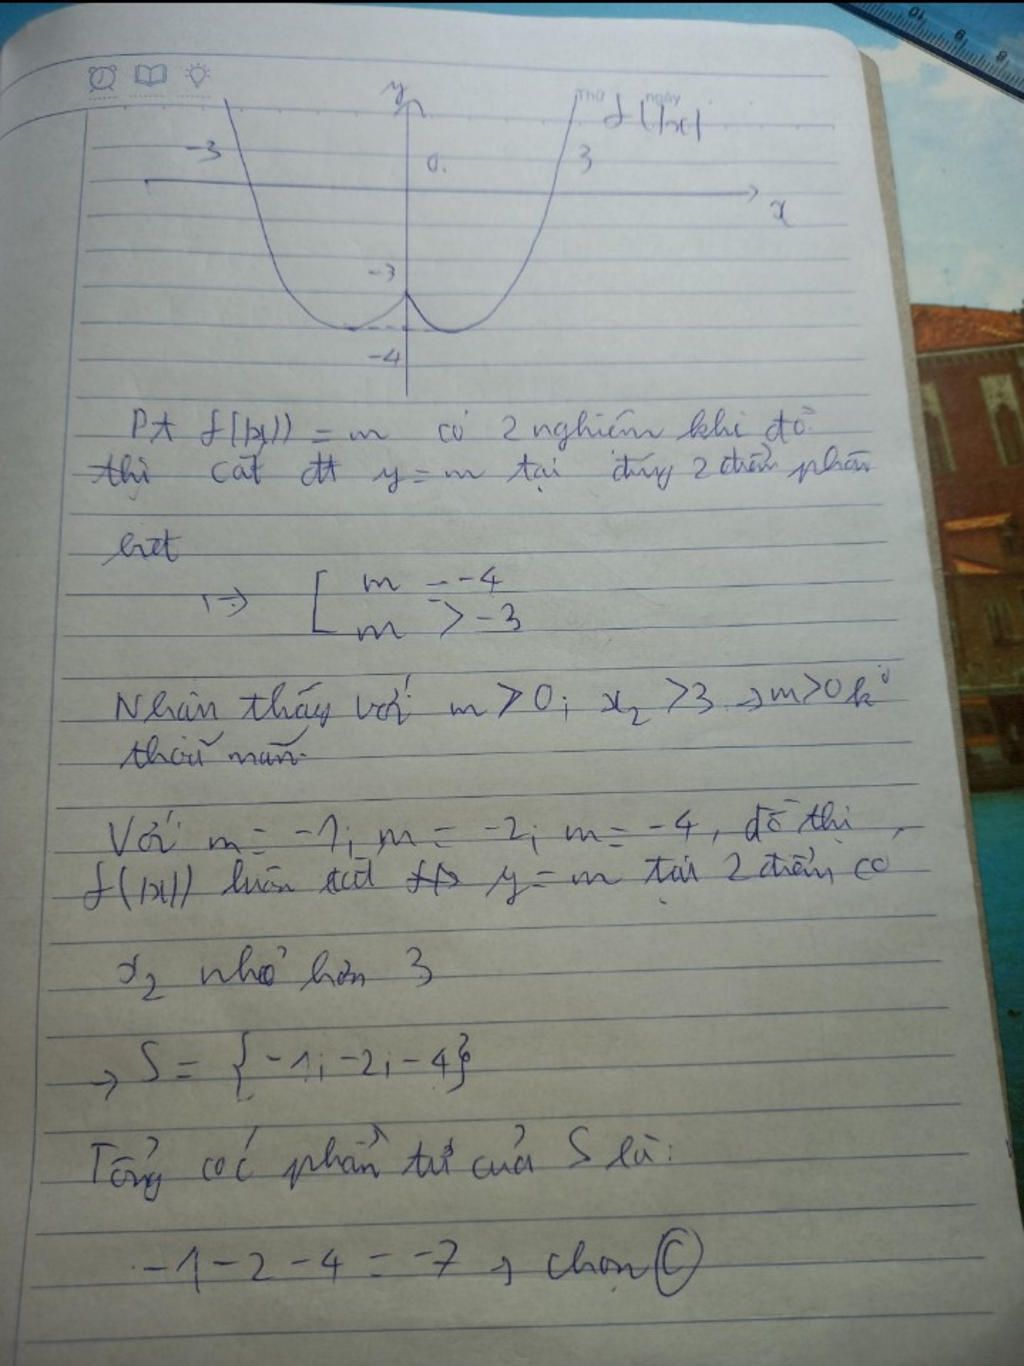 Thứ ngày
y
f(|x|)
-3
0
3
x
-3
-4
Pt f(|x|) = m có 2 nghiệm khi đồ
thị cắt đt y = m tại đúng 2 điểm phân
biệt
=> [ m = -4
m > -3
Nhận thấy với m > 0; x₂ > 3 → m > 0 k°
thoả mãn.
Với m = -1; m = -2; m = -4, đồ thị
f(|x|) luôn cắt y = m tại 2 điểm có
x₂ nhỏ hơn 3
→ S = {-1; -2; -4}
Tổng các phần tử của S là:
-1 - 2 - 4 = -7 → chọn C
10
9
8